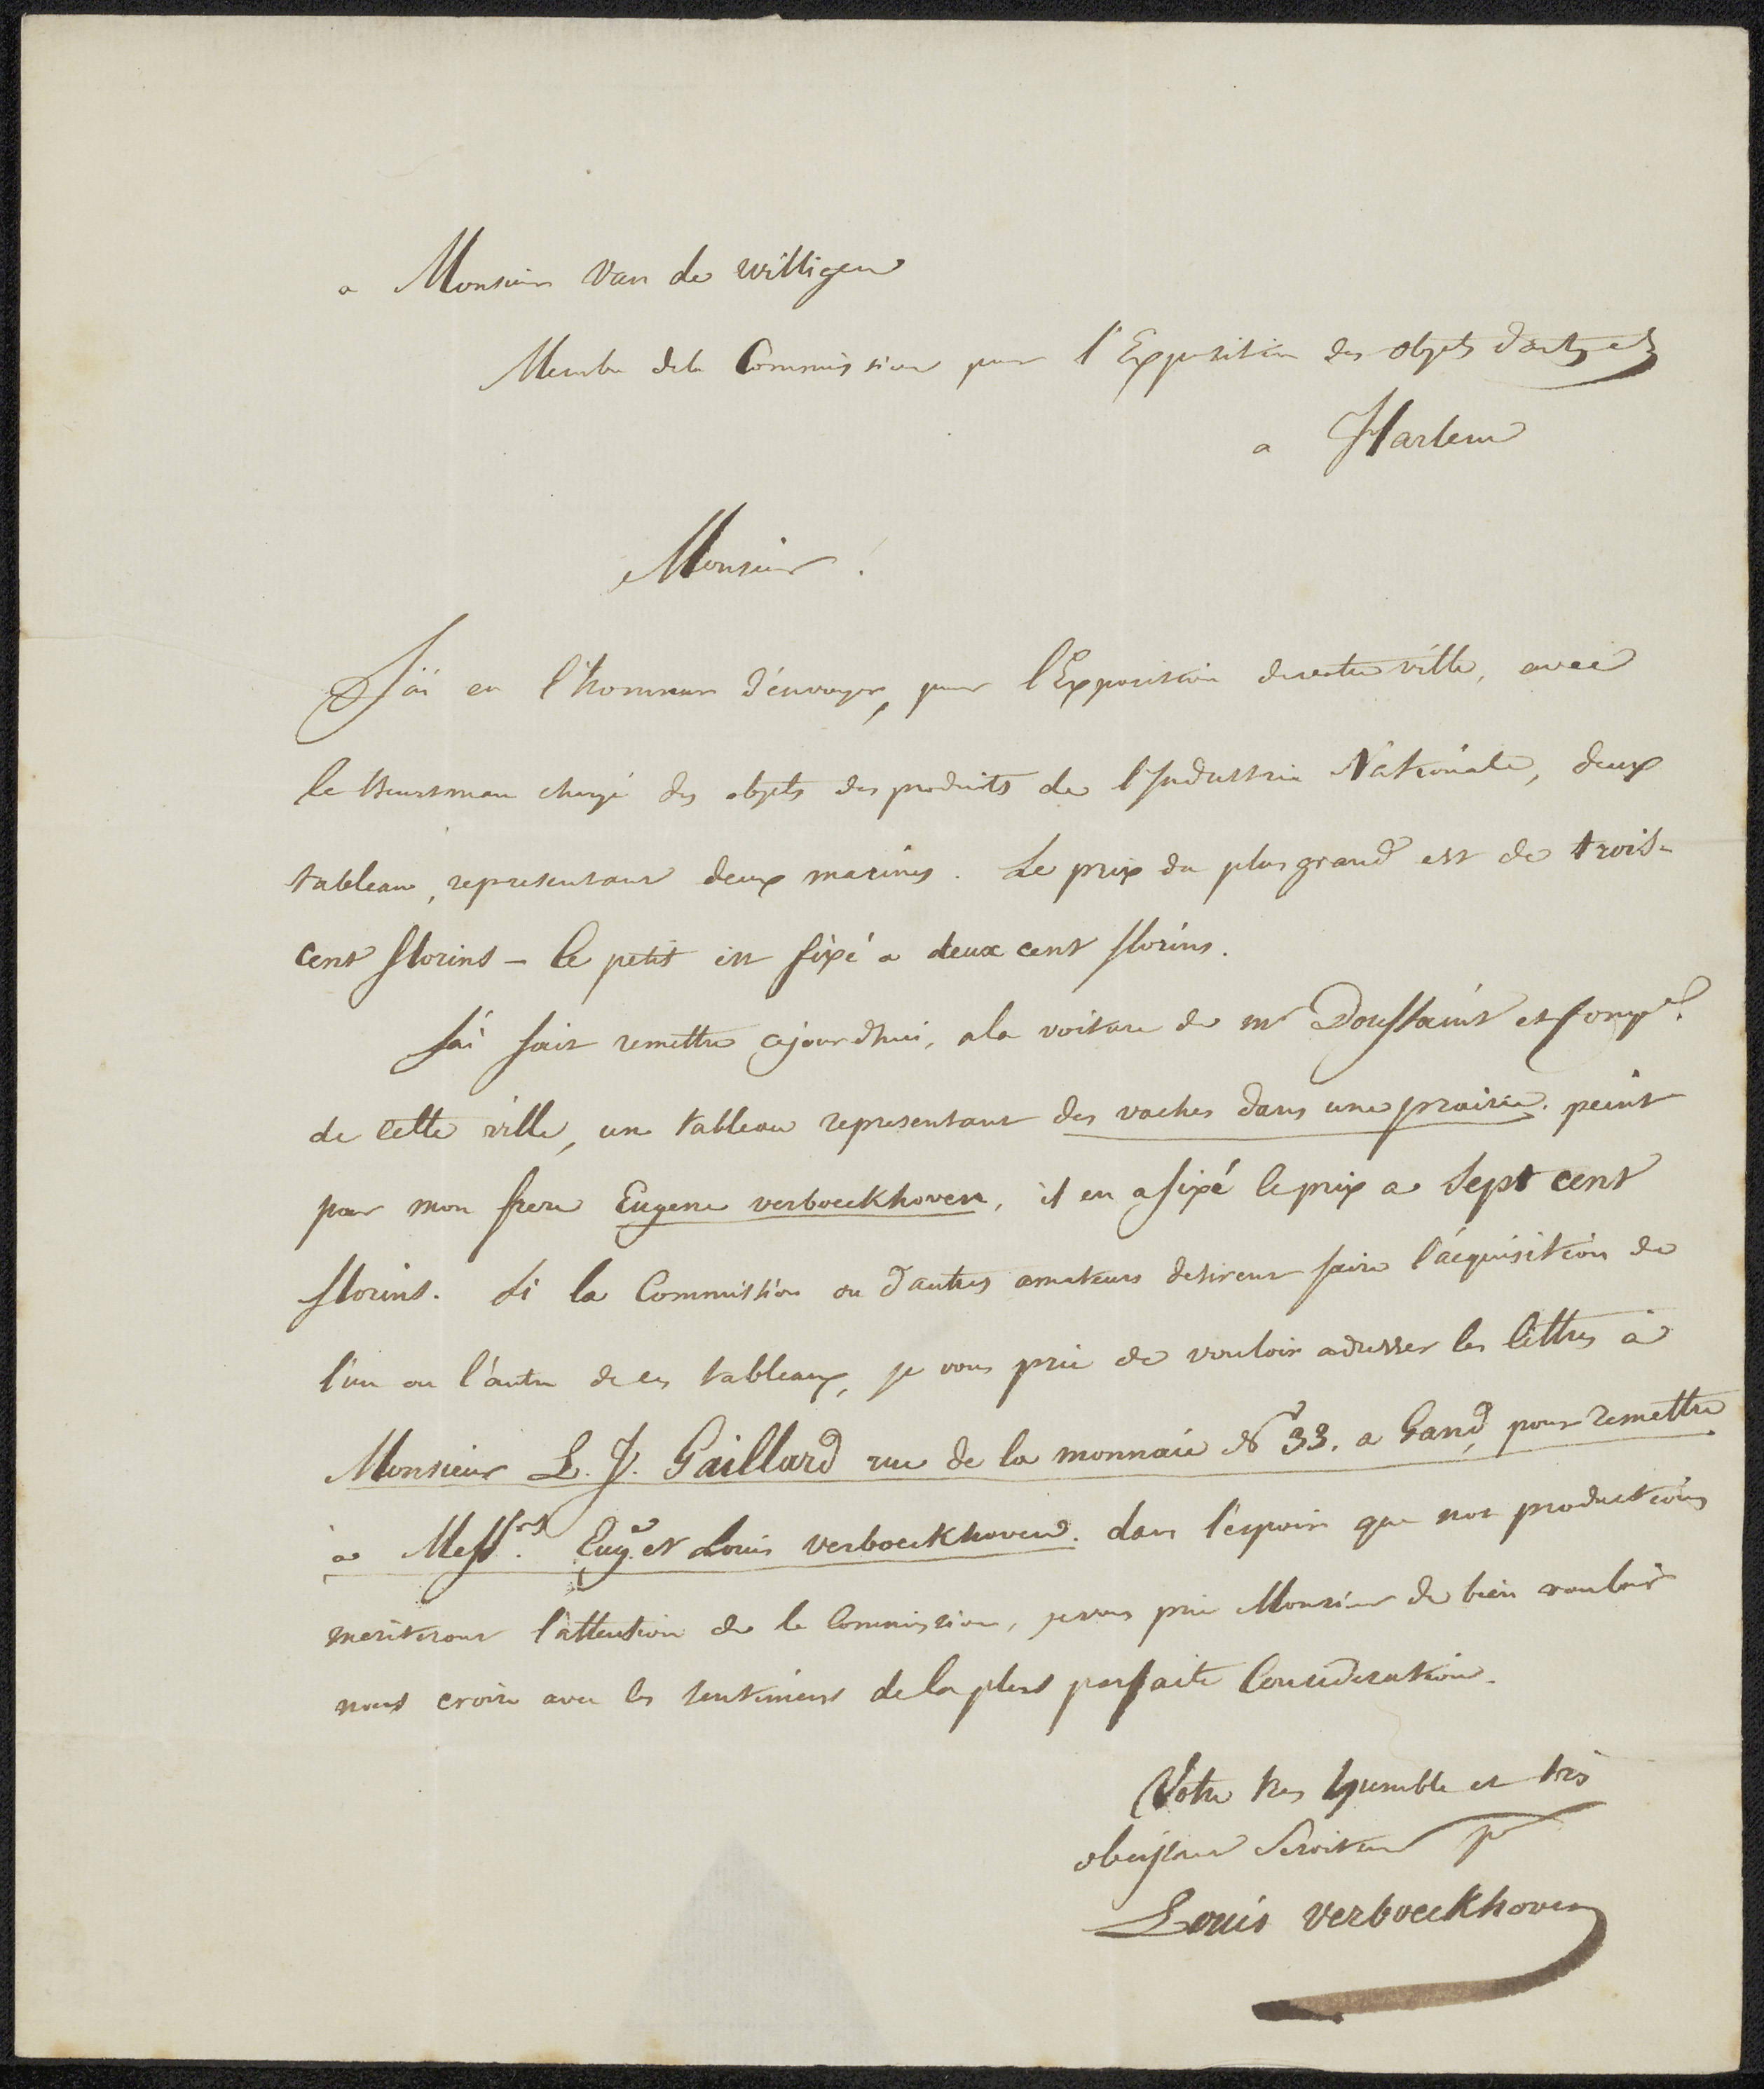 a Monsieur Van de Willigen
Membre dela Commission pour l'Exposition des objets d'arts etz
a Harlem
Monsieur!
J'ai eu l'honneur d'envoyer, pour l'Exposition de votre ville, avec
le Beurtman chargé des objets des produits de l'Industrie Nationale, deux
tableau, representant deux marines. Le prix du plus grand est de trois-
cent florins – le petit est fixé a deux cent florins.
J'ai fait remettre ajourdhui, ala voiture de mr Doussaint et Compe.
de cette ville, un tableau representant des vaches dans une prairie. peint
par mon frere Eugene verboeckhoven, il en a fixé le prix a sept cent
florins. Si la Commission ou d'autres amateurs desirent faire l'acquisition de
l'un ou l'autre de ces tableaux, je vous prie de vouloir adresser les lettres à
Monsieur L. J. Gaillard rue de la monnaie No 33. a Gand, pour remettre
à Messrs. Eug. et Louis verboeckhoven. dans l'espoir que nos productions
meriteront l'attention de la Commission, je vous prie Monsieur de bien vouloir
nous croire avec les sentimens de la plus parfaite Consideration.
Votre tres humble et très
obeissant Serviteur
Louis verboeckhoven